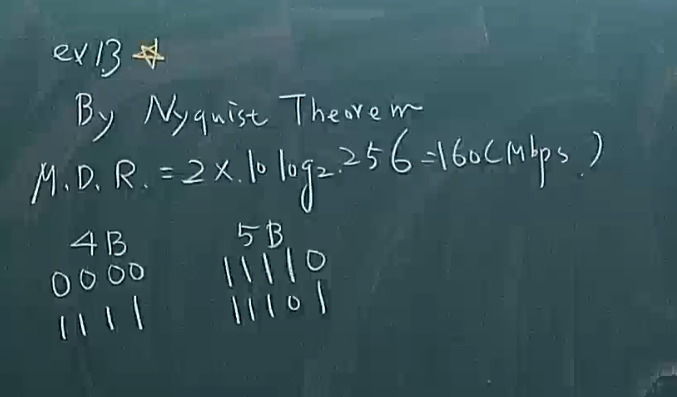 ex 13 ☆
By Nyquist Theorem
M.D.R. = 2 x.10 log2.256 = 160 (Mbps.)
4B 5B
0000 11110
1111 11101